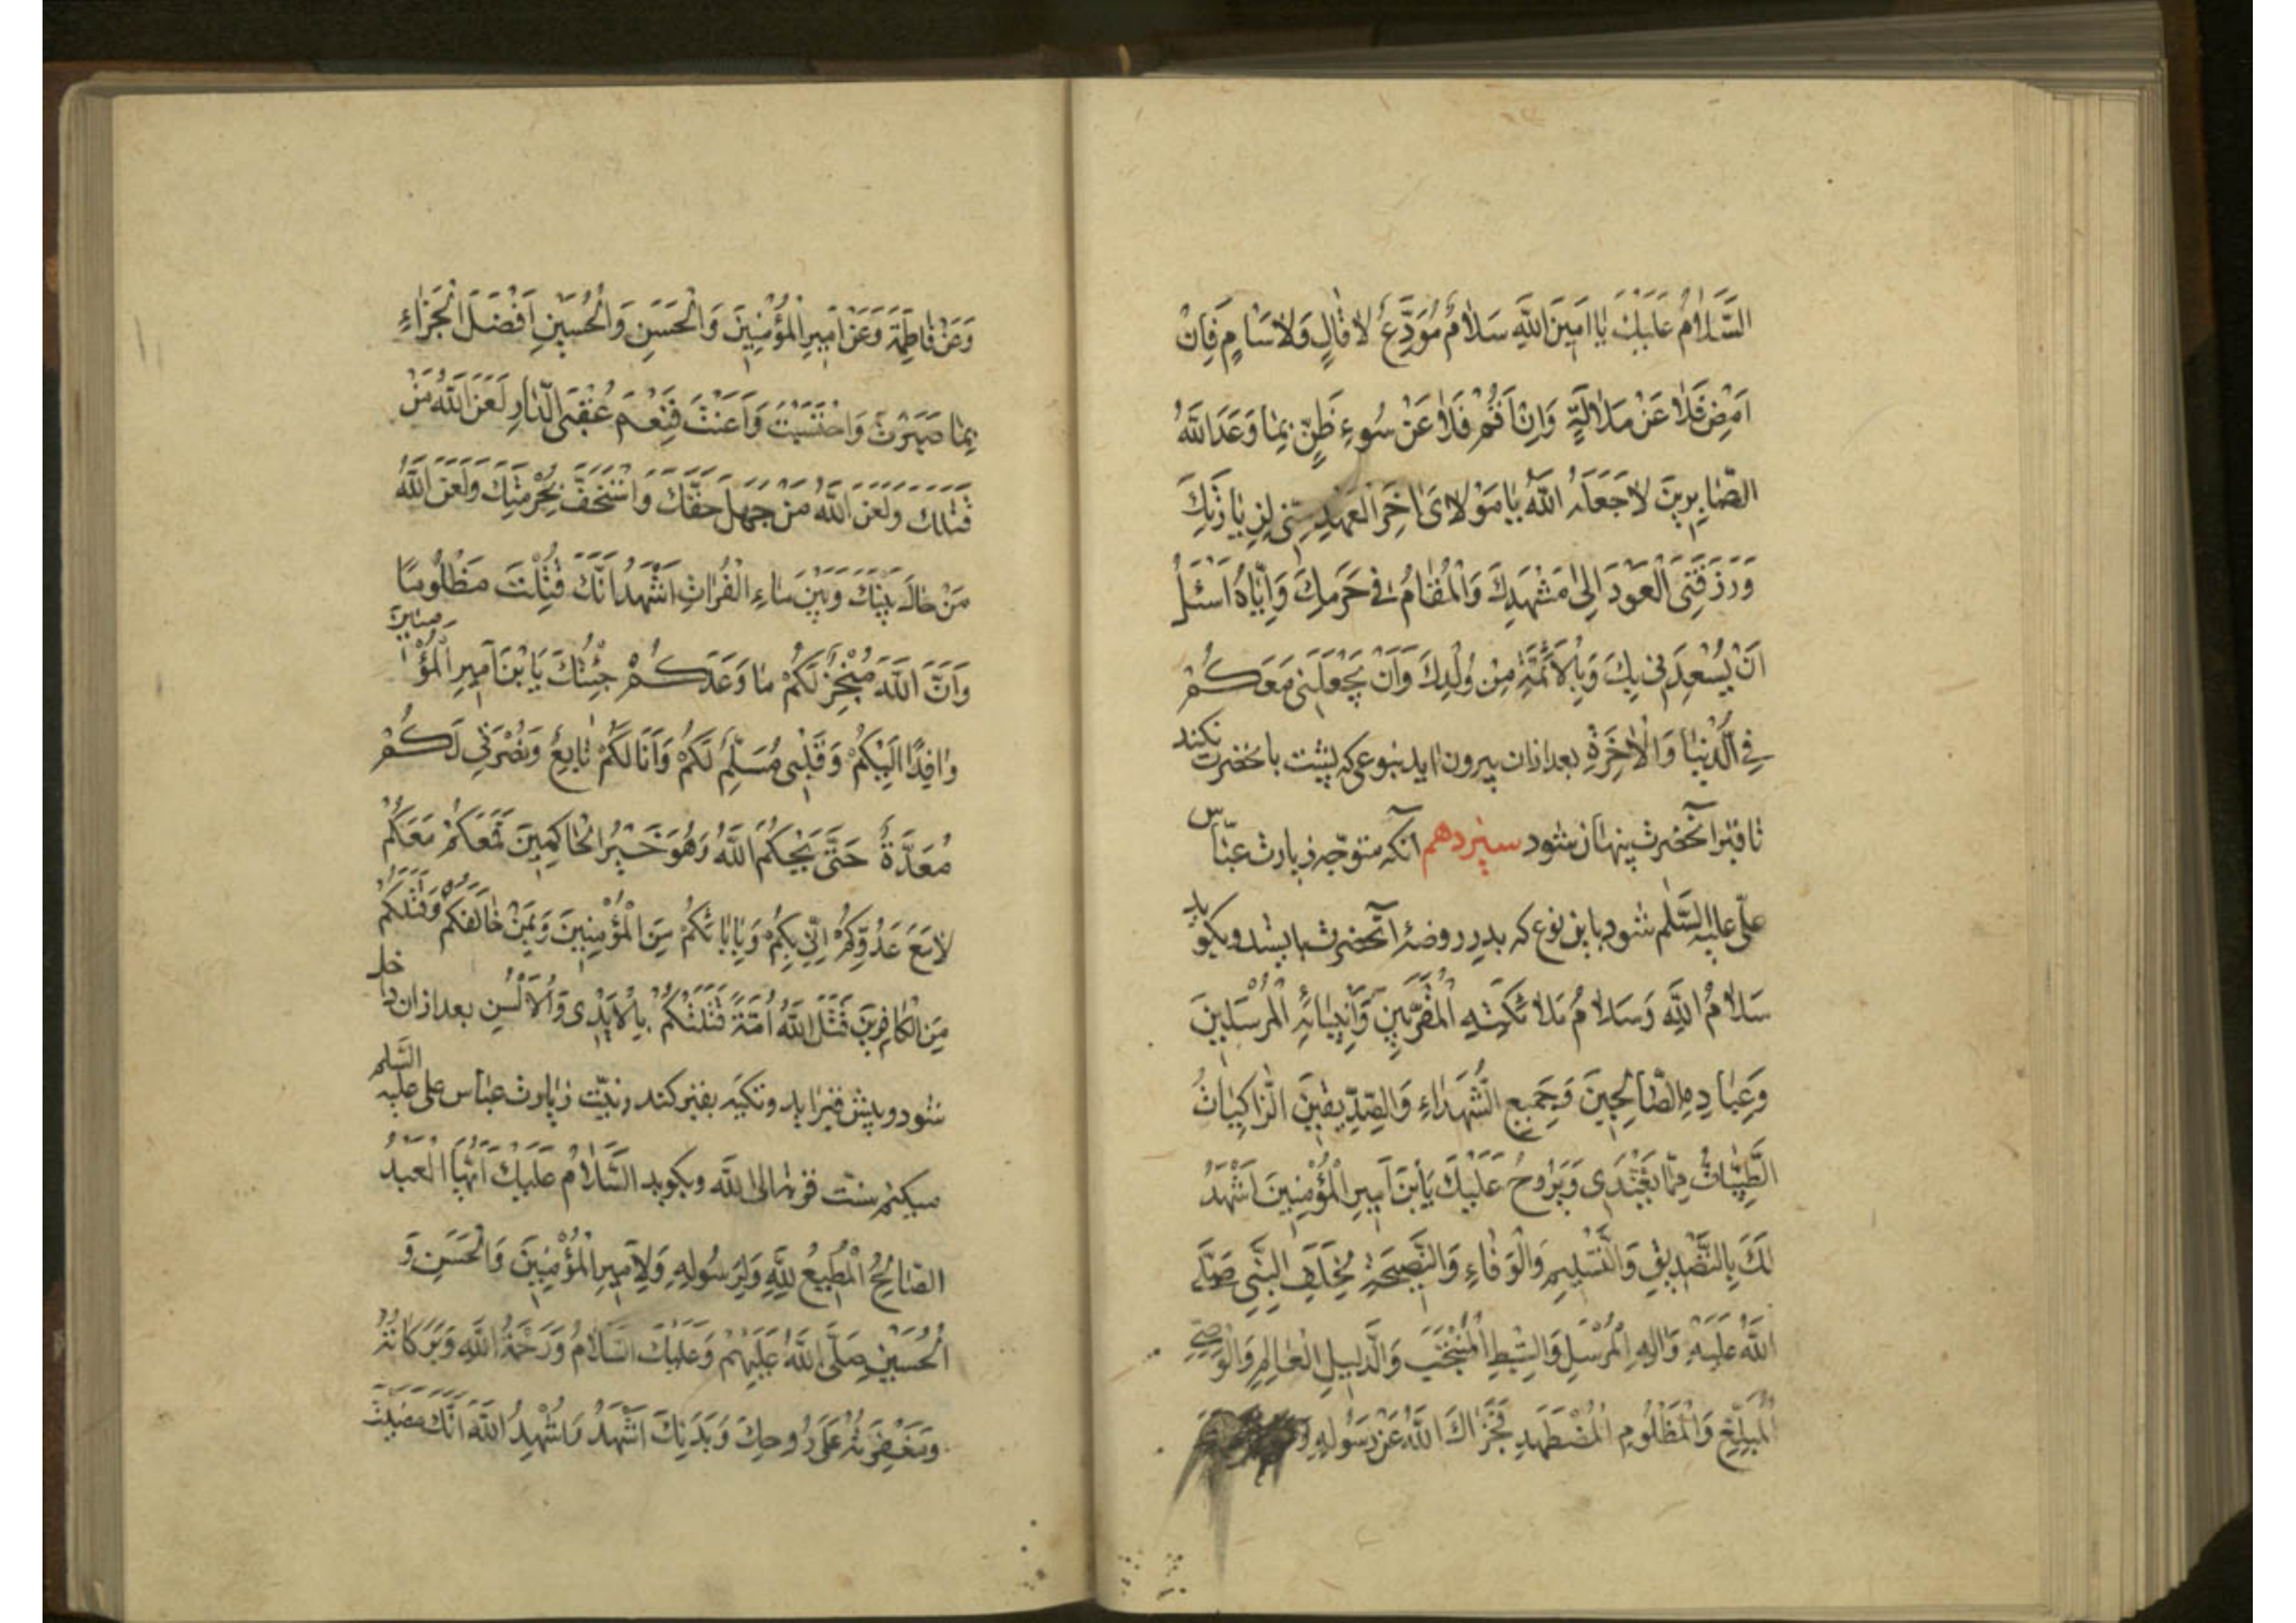 السَّلَامُ عَلَيْكَ يَا اَمِينَ اللَّهِ سَلَامُ مُوَدِّعٍ لَا قَالٍ وَلَا سَامٍ فَاِنْ
اَمْضِ فَلَا عَنْ مَلَالَةٍ وَاِنْ اَقُمْ فَلَا عَنْ سُوءِ ظَنٍّ بِمَا وَعَدَ اللَّهُ
الصَّابِرِينَ لَا جَعَلَهُ اللَّهُ يَا مَوْلَايَ اخِرَ الْعَهْدِ مِنِّى لِزِيَارَتِكَ
وَرَزَقَنِيَ الْعَوْدَ اِلىٰ مَشْهَدِكَ وَالْمُقَامُ فِي حَرَمِكَ وَاِيَّاهُ اَسْئَلُ
اَنْ يُسْعِدَنِى بِكَ وَبِالْاَئِمَّةِ مِنْ وُلْدِكَ وَاَنْ يَجْعَلَنِى مَعَكُمْ
فِي الدُّنْيَا وَالْاٰخِرَةِ بعد ازان بيرون ايد بنوعى كه پشت بانحضرت نكند
تا قبر انحضرت پنهان شود سيزدهم آنكه متوجه زيارت عبّاس
علىّ عليه السَّلم شود باين نوع كه بدر روضهٔ آنحضرت بايستد و بكويد
سَلَامُ اللَّهِ وَسَلَامُ مَلَائِكَتِهِ الْمُقَرَّبِينَ وَاَنْبِيَائِهِ الْمُرْسَلِينَ
وَعِبَادِهِ الصَّالِحِينَ وَجَمِيعِ الشُّهَدَاءِ وَالصِّدِّيقِينَ الزَّاكِيَاتُ
الطَّيِّبَاتُ فِيمَا يَغْتَدِى وَيَرُوحُ عَلَيْكَ يَا بْنَ اَمِيرِ الْمُؤْمِنِينَ اَشْهَدُ
لَكَ بِالتَّصْدِيقِ وَالتَّسْلِيمِ وَالْوَفَاءِ وَالنَّصِيحَةِ لِخَلَفِ النَّبِىِّ صَلَّى
اللَّهُ عَلَيْهِ وَالِهِ الْمُرْسَلِ وَالسِّبْطِ الْمُنْتَجَبِ وَالدَّلِيلِ الْعَالِمِ وَالْوَصِىِّ
الْمُبَلِّغِ وَالْمَظْلُومِ الْمُضْطَهَدِ فَجَزَاكَ اللَّهُ عَنْ رَسُولِهِ
وَعَنْ فَاطِمَةَ وَعَنْ اَمِيرِ الْمُؤْمِنِينَ وَالْحَسَنِ وَالْحُسَيْنِ اَفْضَلَ الْجَزَاءِ
بِمَا صَبَرْتَ وَاحْتَسَبْتَ وَاَعَنْتَ فَنِعْمَ عُقْبَى الدَّارِ لَعَنَ اللَّهُ مَنْ
قَتَلَكَ وَلَعَنَ اللَّهُ مَنْ جَهِلَ حَقَّكَ وَاسْتَخَفَّ بِحُرْمَتِكَ وَلَعَنَ اللَّهُ
مَنْ حَالَ بَيْنَكَ وَبَيْنَ مَاءِ الْفُرَاتِ اَشْهَدُ اَنَّكَ قُتِلْتَ مَظْلُومًا
وَاَنَّ اللَّهَ مُنْجِزٌ لَكُمْ مَا وَعَدَكُمْ جِئْتُكَ يَا بْنَ اَمِيرِ الْمُؤْ
وَافِدًا اِلَيْكُمْ وَقَلْبِى مُسَلِّمٌ لَكُمْ وَاَنَا لَكُمْ تَابِعٌ وَنُصْرَتِي لَكُمْ
مُعَدَّةٌ حَتَّى يَحْكُمَ اللَّهُ وَهُوَ خَيْرُ الْحَاكِمِينَ فَمَعَكُمْ مَعَكُمْ
لَا مَعَ عَدُوِّكُمْ اِنِّي بِكُمْ وَبِاِيَابِكُمْ مِنَ الْمُؤْمِنِينَ وَبِمَنْ خَالَفَكُمْ وَقَتَلَكُمْ
مِنَ الْكَافِرِينَ قَتَلَ اللَّهُ اُمَّةً قَتَلَتْكُمْ بِالْاَيْدِى وَالْاَلْسُنِ بعد ازان داخل
شود و پيش قبر ايد و تكيه بقبر كند ونيّت زيارت عباس على عليه السَّلم
ميكنم سنّت قربة الى اللَّه وبكويد السَّلَامُ عَلَيْكَ اَيُّهَا الْعَبْدُ
الصَّالِحُ الْمُطِيعُ لِلَّهِ وَلِرَسُولِهِ وَلِاَمِيرِ الْمُؤْمِنِينَ وَالْحَسَنِ وَ
الْحُسَيْنِ صَلَّى اللَّهُ عَلَيْهِمْ وَعَلَيْكَ السَّلَامُ وَرَحْمَةُ اللَّهِ وَبَرَكَاتُهُ
وَمَغْفِرَتُهُ عَلَى رُوحِكَ وَبَدَنِكَ اَشْهَدُ وَاُشْهِدُ اللَّهَ اَنَّكَ مَضَيْتَ